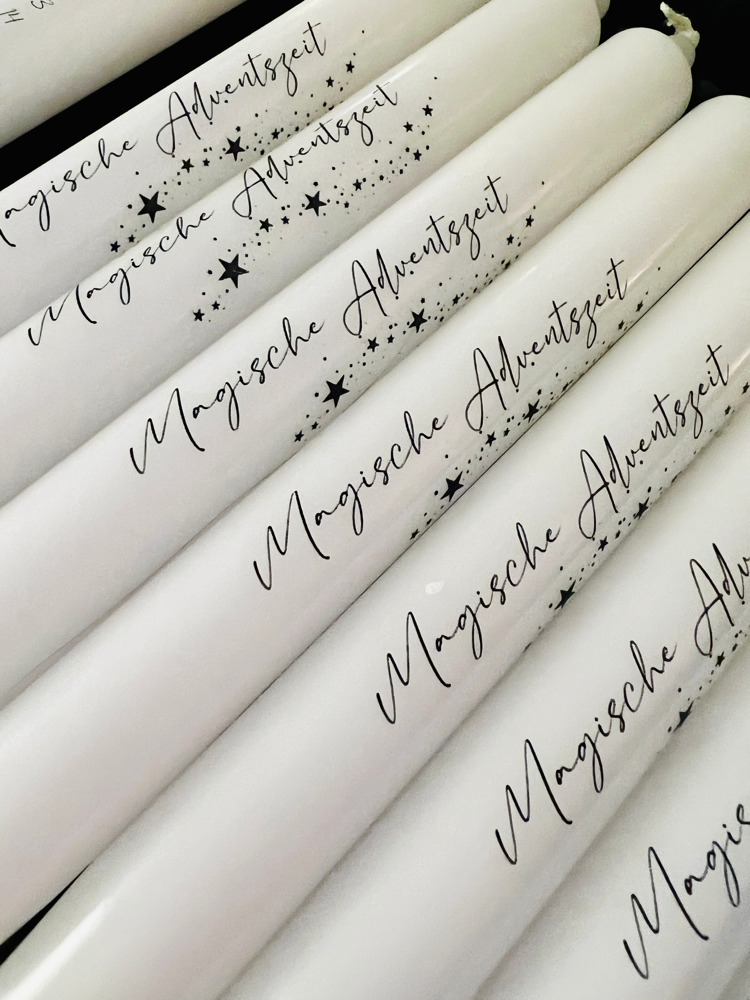 Magische Adventszeit
Magische Adventszeit
Magische Adventszeit
Magische Adventszeit
Magische Adventszeit
Magische Adv
Magis